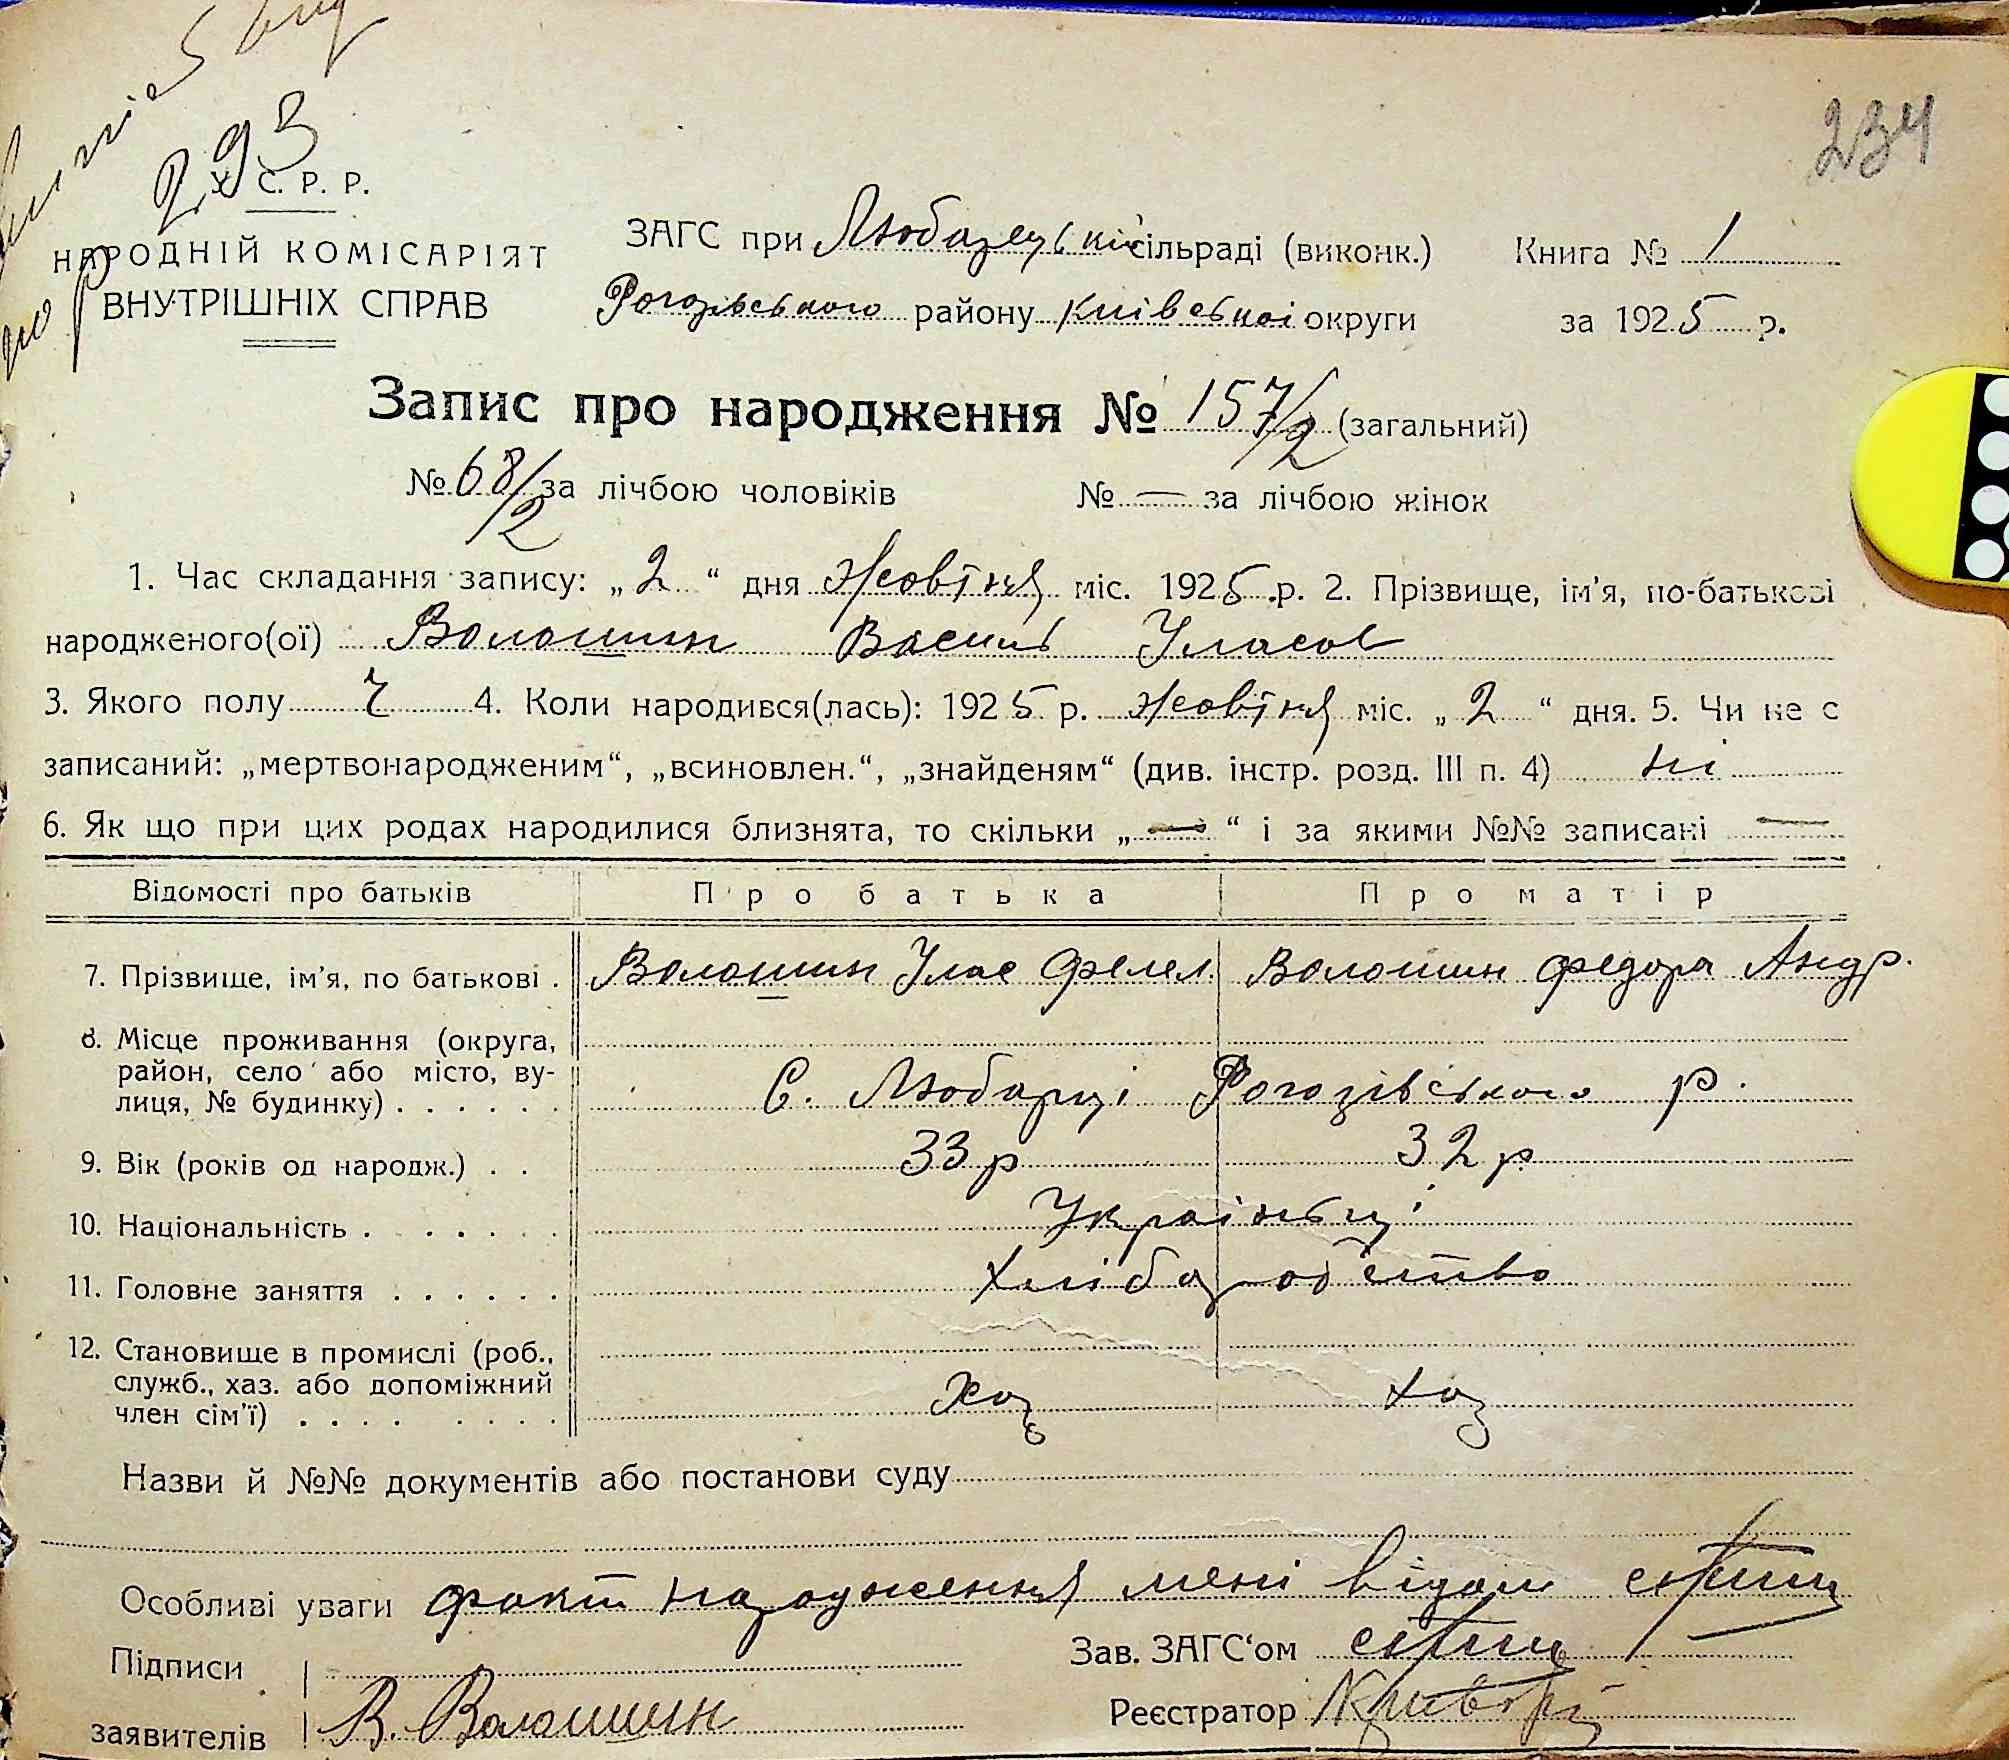 293
234
У. С. Р. Р.
НАРОДНІЙ КОМІСАРІЯТ
ВНУТРІШНІХ СПРАВ
ЗАГС при Любарецькій сільраді (виконк.)
Рогозівського району Київської округи
Книга № 1
за 1925 р.
Запис про народження № 157/2 (загальний)
№ 68/2 за лічбою чоловіків № — за лічбою жінок
1. Час складання запису: „2“ дня Жовтня міс. 1925 р. 2. Прізвище, ім'я, по-батькові
народженого(ої) Волошин Василь Уласов
3. Якого полу ч 4. Коли народився(лась): 1925 р. жовтня міс. „2“ дня. 5. Чи не є
записаний: „мертвонародженим“, „всиновлен.“, „знайденям“ (див. інстр. розд. III п. 4) ні
6. Як що при цих родах народилися близнята, то скільки „—“ і за якими №№ записані —
Відомості про батьків Про батька Про матір
7. Прізвище, ім'я, по батькові . Волошин Улас Филел. Волошин Федора Андр.
8. Місце проживання (округа,
район, село або місто, ву-
лиця, № будинку) . . . . . . С. Любарці Рогозівського р.
9. Вік (років од народж.) . . 33 р 32 р
10. Національність . . . . . . Україньці
11. Головне заняття . . . . . . Хлібаробство
12. Становище в промислі (роб.,
служб., хаз. або допоміжний
член сім'ї) . . . . . . . . хаз хаз
Назви й №№ документів або постанови суду
Особливі уваги факт народження мені відом
Підписи
заявителів В. Волошин
Зав. ЗАГС'ом
Реєстратор